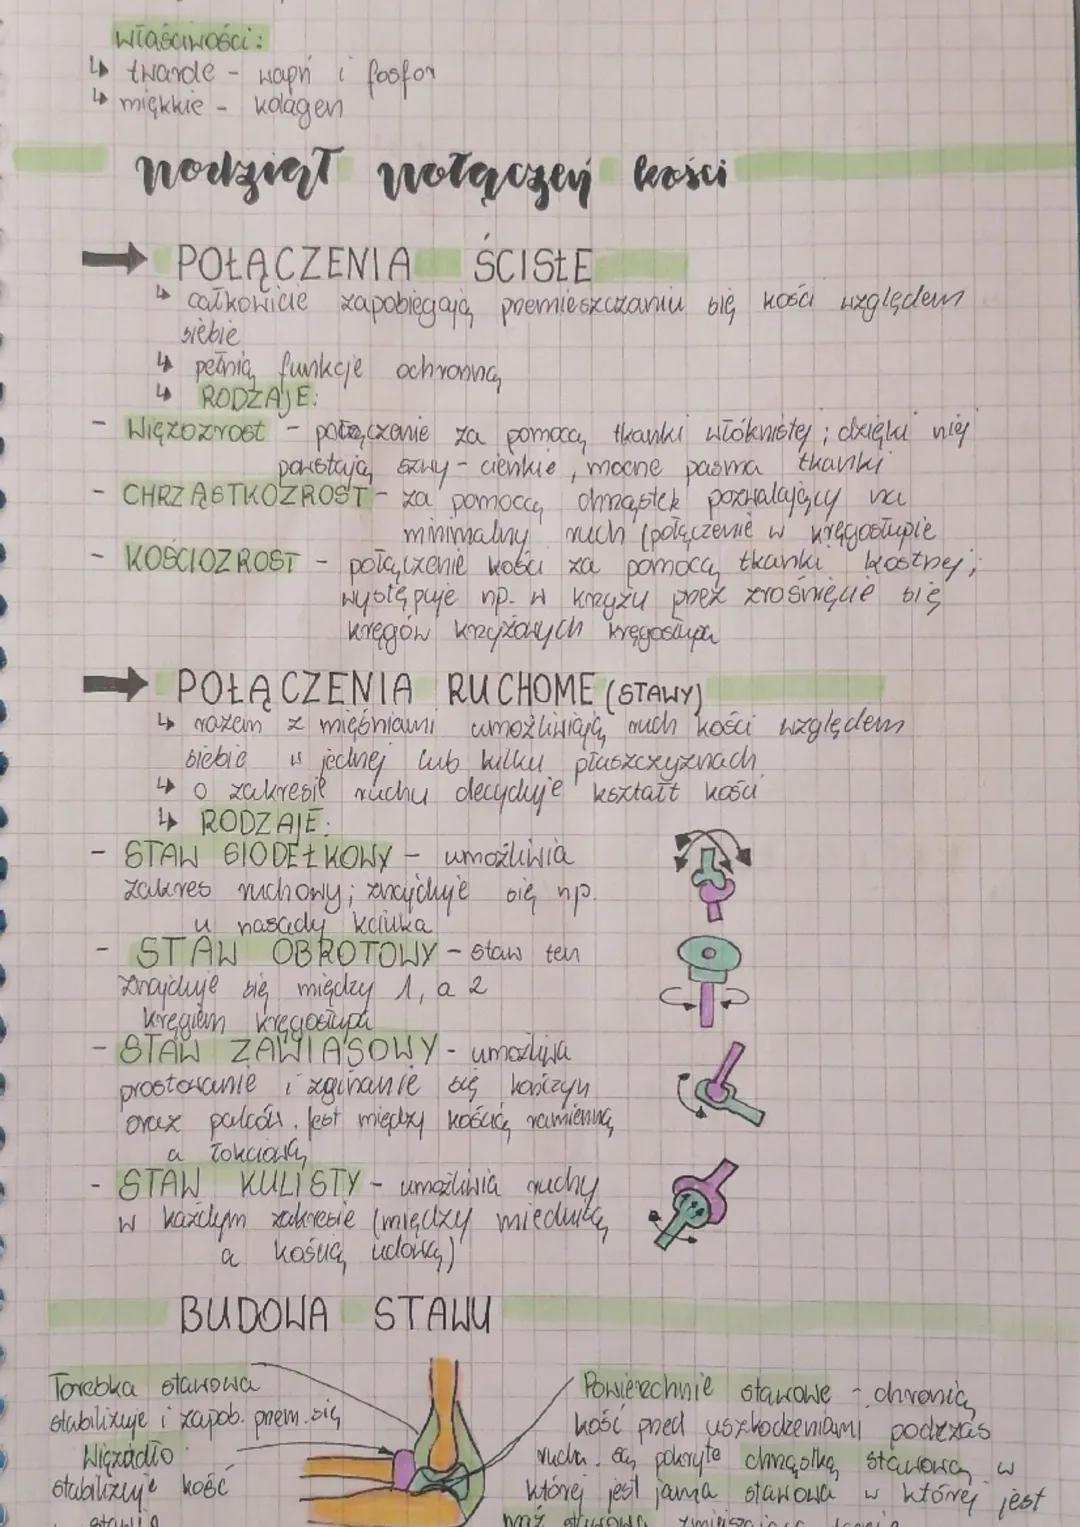 właściwości:
↳ twarde - wapń i fosfor
↳ miękkie - kolagen
podział połączeń kości
→ POŁĄCZENIA ŚCISŁE
↳ całkowicie zapobiegają przemieszczaniu się kości względem
siebie
↳ pełnią funkcje ochronną
↳ RODZAJE:
- Więzozrost - połączenie za pomocą tkanki włóknistej; dzięki niej
powstają szwy - cienkie, mocne pasma tkanki
- CHRZĄSTKOZROST - za pomocą chrząstek pozwalający na
minimalny ruch (połączenie w kręgosłupie
- KOŚCIOZROST - połączenie kości za pomocą tkanki kostnej;
występuje np. w krzyżu przez zrośnięcie się
kręgów krzyżowych kręgosłupa
→ POŁĄCZENIA RUCHOME (STAWY)
↳ razem z mięśniami umożliwiają ruch kości względem
siebie w jednej lub kilku płaszczyznach
↳ o zakresie ruchu decyduje kształt kości
↳ RODZAJE:
- STAW SIODEŁKOWY - umożliwia
zakres ruchowy; znajduje się np.
u nasady kciuka
- STAW OBROTOWY - staw ten
znajduje się między 1, a 2
kręgiem kręgosłupa
- STAW ZAWIASOWY - umożliwia
prostowanie i zginanie się kończyn
oraz palców. Jest między kością ramienną
a łokciową
- STAW KULISTY - umożliwia ruchy
w każdym zakresie (między miednicą
a kością udową)
BUDOWA STAWU
Torebka stawowa
stabilizuje i zapob. przem. się
Więzadło
stabilizuje kość
Powierzchnie stawowe - chronią
kość przed uszkodzeniami podczas
ruchu. są pokryte chrząstką stawową w
której jest jama stawowa w której jest
maź stawowa